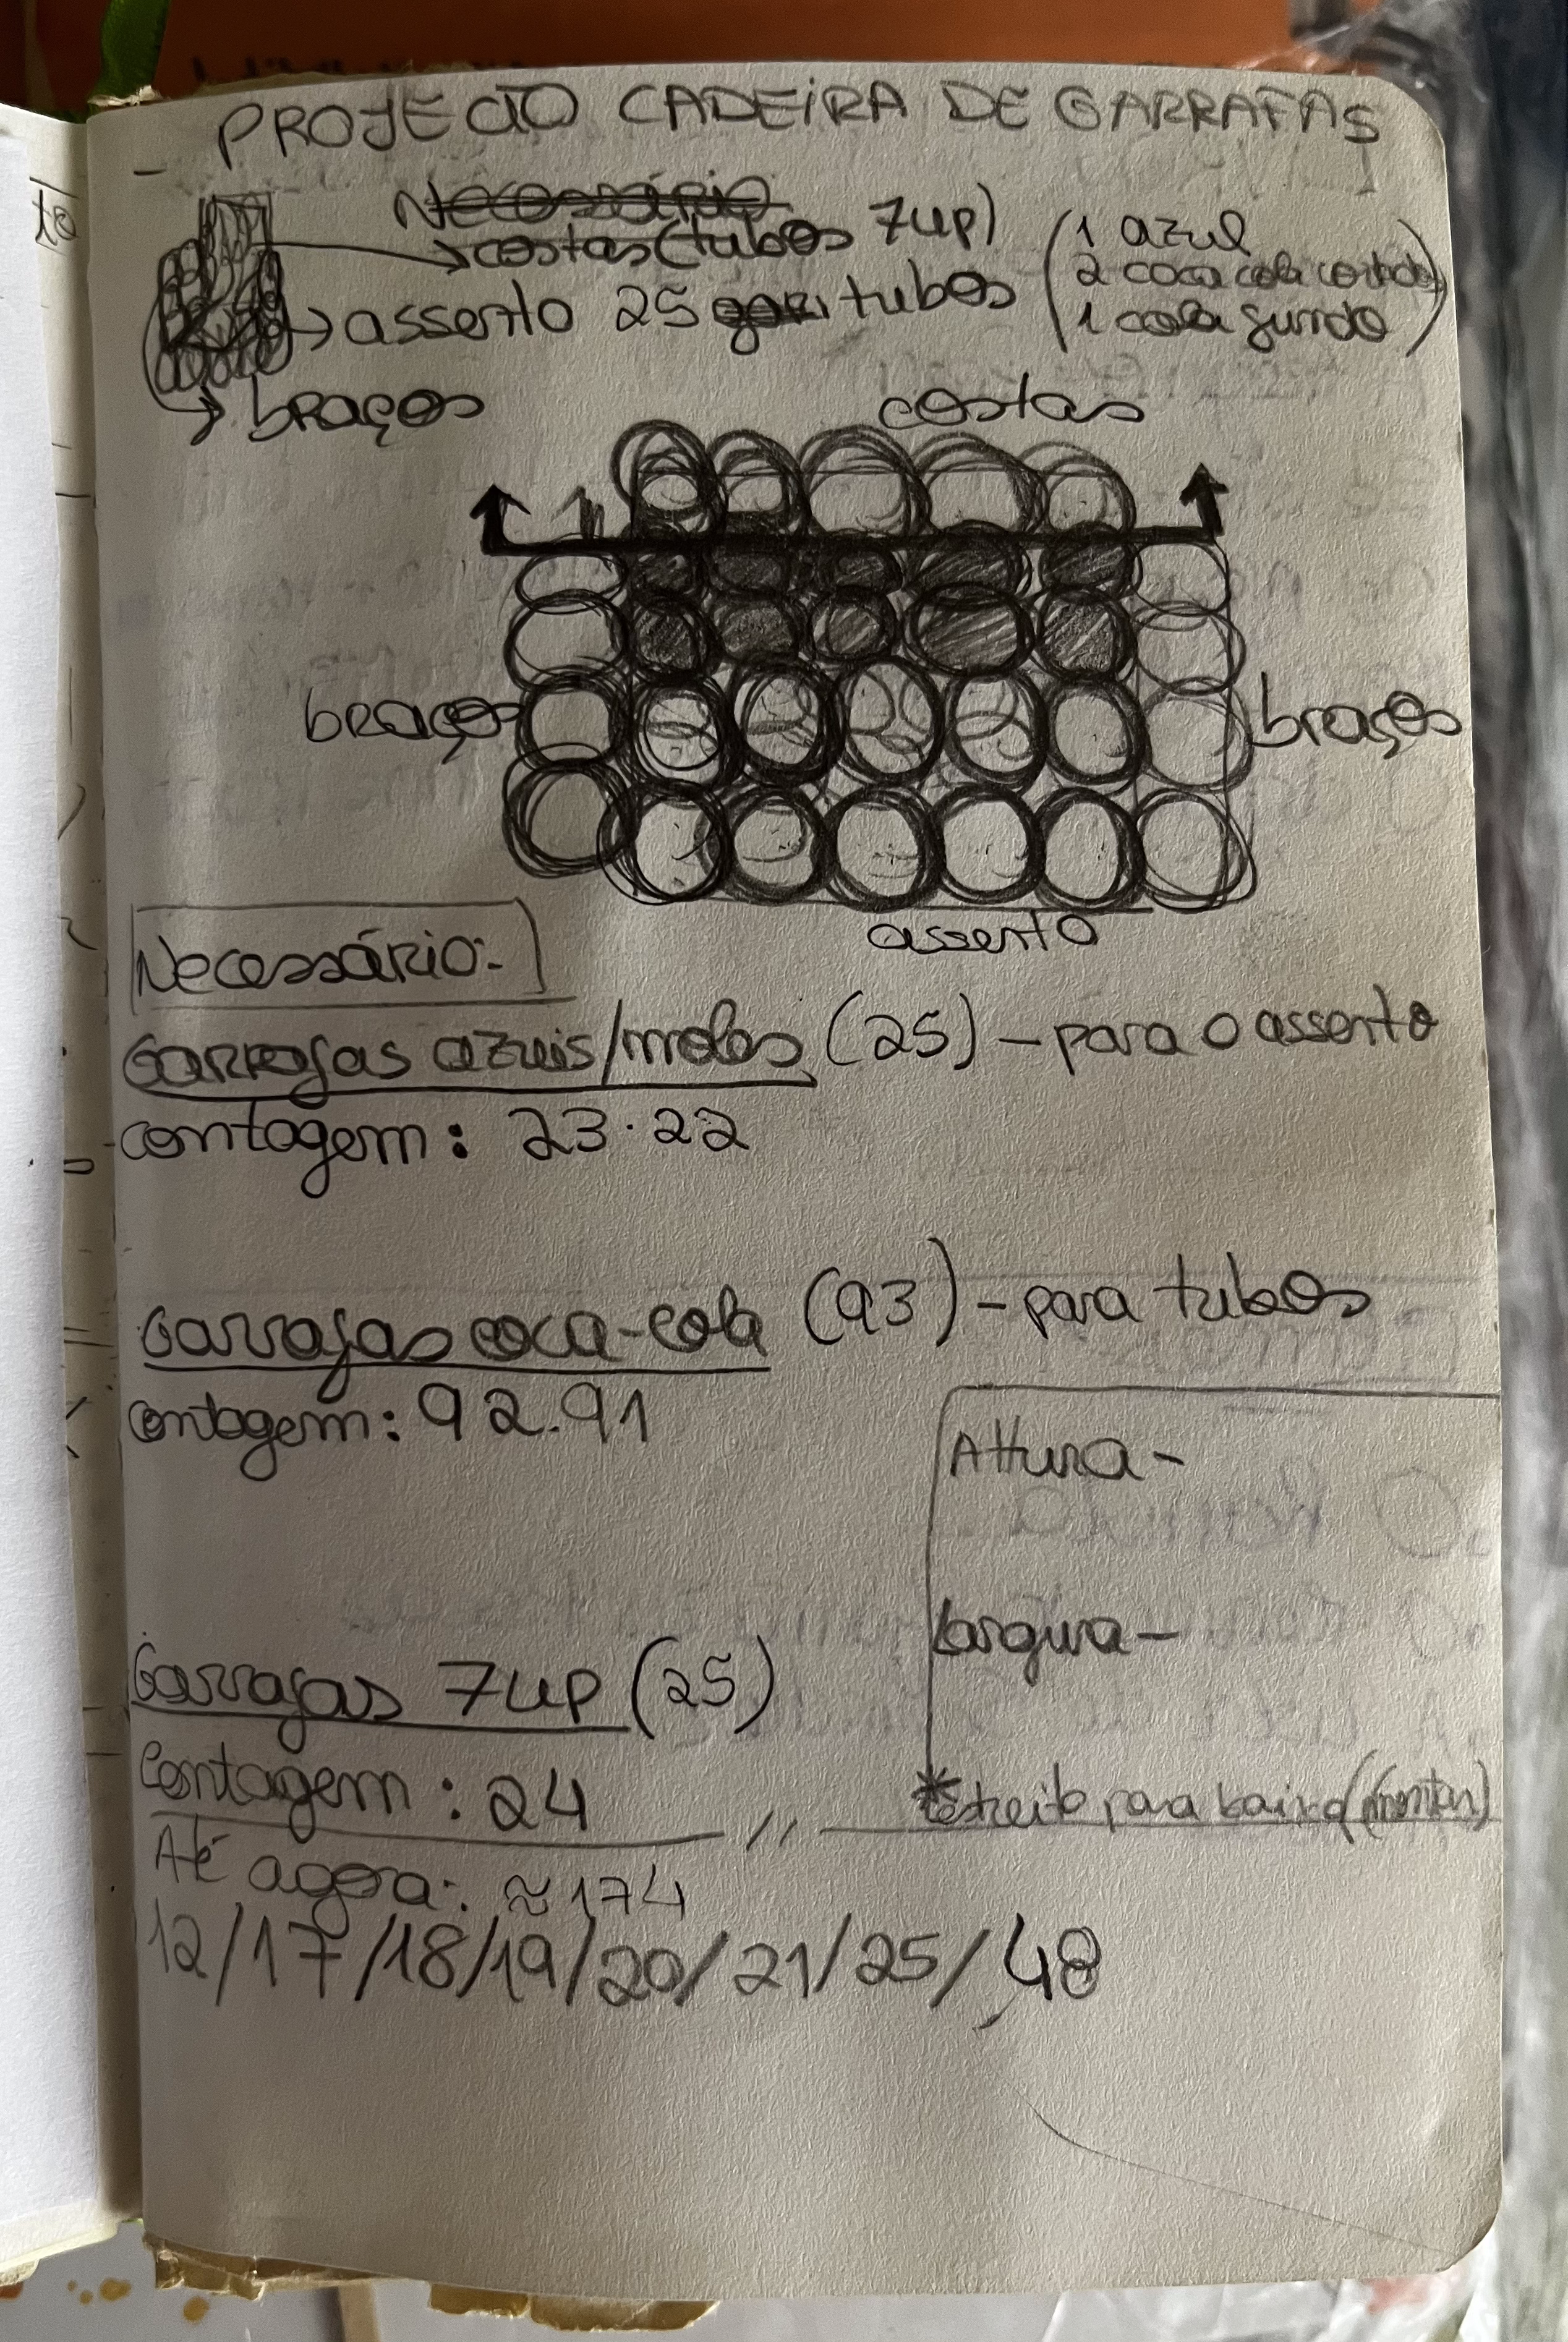 PROJECTO CADEIRA DE GARRAFAS
Necessário
costas (tubos 7up)
assento 25 tubos (1 azul
2 coca cola
1 cola fundo)
braços
costas
braços
braços
assento
Necessário:
Garrafas azuis/moles (25) - para o assento
contagem: 23.22
Garrafas coca-cola (93) - para tubos
contagem: 92.91
Altura -
largura -
Garrafas 7up (25)
Contagem: 24
* estreito para baixo (montar)
Até agora: ≈174
12/17/18/19/20/21/25/48